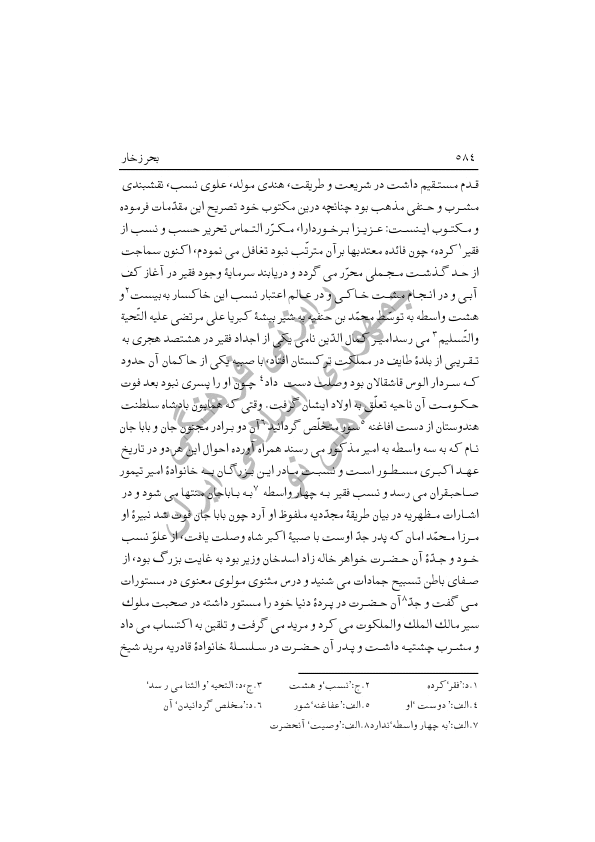 ۵۸۴ بحر زخار
قـدم مستـقیم داشت در شریعت و طریقت، هندی مولد، علوی نسب، نقشبندی
مشـرب و حـنفی مذهب بود چنانچه درین مکتوب خود تصریح این مقدّمات فرموده
و مکتـوب ایـنست: عـزیـزا بـرخـوردارا، مکـرّر التمـاس تحریر حسب و نسب از
فقیر۱ کرده، چون فائده معتدبها بر آن مترتّب نبود تغافل می نمودم، اکنون سماجت
از حـد گـذشـت مجـملی محرّر می گردد و دریابند سرمایهٔ وجود فقیر در آغاز کف
آبـی و در انجـام مشـت خـاکـی و در عـالم اعتبار نسب این خاکسار به بیست۲ و
هشت واسطه به توسّط محمّد بن حنفیه به شیر بیشهٔ کبریا علی مرتضی علیه التّحیة
والتّسلیم۳ می رسد امیـر کمال الدّین نامی یکی از اجداد فقیر در هشتصد هجری به
تقـریبی از بلدهٔ طایف در مملکت ترکستان افتاد، با صبیه یکی از حاکمان آن حدود
کـه سـردار الوس قاشقالان بود وصلت دست داد۴ چـون او را پسری نبود بعد فوت
حکـومـت آن ناحیه تعلّق به اولاد ایشان گرفت. وقتی کـه همایون بادشاه سلطنت
هندوستان از دست افاغنه۵ سور متخلّص گردانید۶ آن دو بـرادر مجنون جان و بابا جان
نـام که به سه واسطه به امیر مذکور می رسند همراه آورده احوال این هر دو در تاریخ
عهـد اکبـری مسـطـور اسـت و نسبـت مـادر ایـن بـزرگـان بـه خـانوادهٔ امیر تیمور
صـاحبقران می رسد و نسب فقیر بـه چهار واسطه ۷به بـاباجان منتها می شود و در
اشـارات مـظهریه در بیان طریقهٔ مجدّدیه ملفوظ او آرد چون بابا جان فوت شد نبیرهٔ او
مـرزا محمّد امان که پدر جدّ اوست با صبیهٔ اکبر شاه وصلت یافت، از علوّ نسب
خـود و جـدّهٔ آن حضـرت خواهر خاله زاد اسدخان وزیر بود به غایت بزرگ بود، از
صـفای باطن تسبیح جمادات می شنید و درس مثنوی مولوی معنوی در مستورات
مـی گفت و جدّ۸ آن حضـرت در پـردهٔ دنیا خود را مستور داشته در صحبت ملوك
سیر مالك الملك والملکوت می کرد و مرید می گرفت و تلقین به اکتساب می داد
و مشـرب چشتیـه داشـت و پـدر آن حضـرت در سـلسـلهٔ خانوادهٔ قادریه مرید شیخ
۱.د:'فقر' کرده ۲.ج:'نسب' و هشت ۳.ج،د: التحیه 'و الثنا می ر سد'
۴.الف:' دوست 'او ۵.الف:'عفاغنه'شور ۶.د:'مخلص گردانیدن' آن
۷.الف:'به چهار واسطه'ندارد ۸.الف:'وصیت' آنحضرت